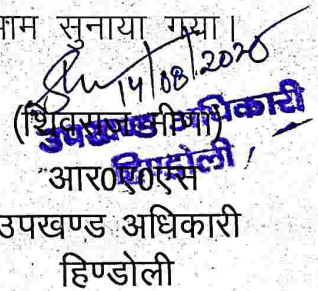 ाम सुनाया गया।
14/08/2020
(शिवराज मीणा)
उपखण्ड अधिकारी
हिण्डोली
आर0ए0एस
उपखण्ड अधिकारी
हिण्डोली